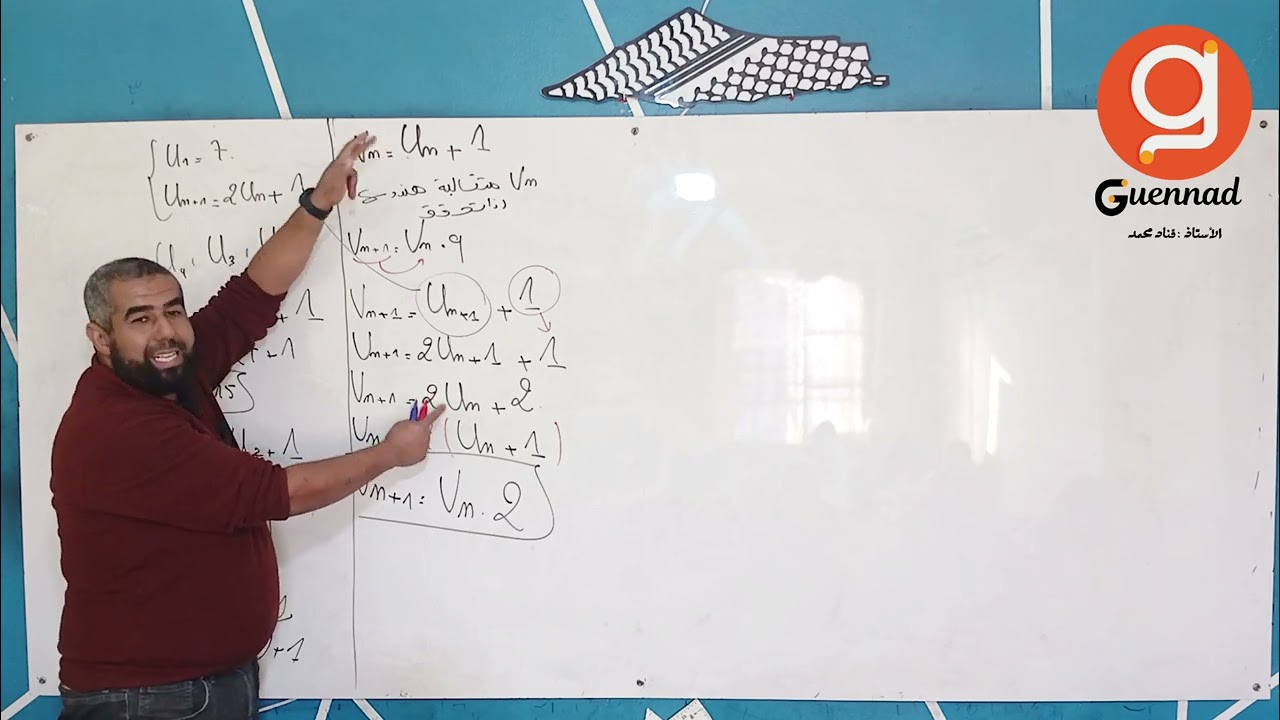 U1 = 7.
Un+1 = 2Un + 1
U4, U3,
+ 1
+ 1
15
+ 1
+ 1
Vn = Un + 1
Vn متتالية هندسية
إذا تحقق
Vn+1 = Vn . q
Vn+1 = Un+1 + 1
Vn+1 = 2Un + 1 + 1
Vn+1 = 2Un + 2
(Un + 1)
Vn+1 = Vn . 2
g
Guennad
الأستاذ : قناد محمد